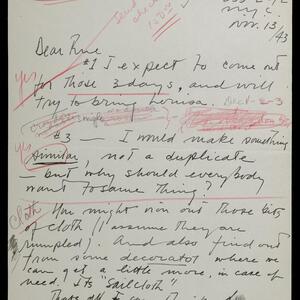 N.Y.C.
Nov. 13/43
send
check
1500
yes
#1 I expect to come out
for those 3 days, and will
try to bring Louisa.
Dec 1-2-3
yes
#3 — I would make something
similar, not a duplicate
— but why should everybody
want to same thing?
cloth
You might iron out those bits
of cloth (I assume they are
rumpled). And also find out
from some decorator where we
can get a little more, in case of
need. Its "sailcloth"
That's all